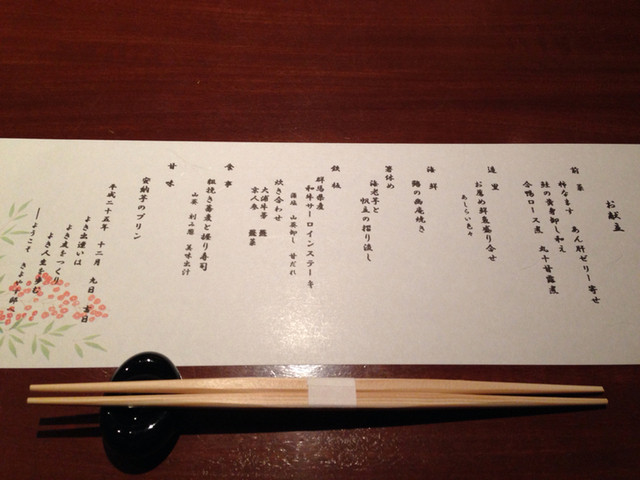 お献立
前菜
柿なます あん肝ゼリー寄せ
鮭の黄身卸し和え
合鴨ロース煮 丸十甘露煮
造里
お薦め鮮魚盛り合せ
あしらい色々
海鮮
鰆の幽庵焼き
箸休め
海老芋と
帆立の摺り流し
鉄板
群馬県産
和牛サーロインステーキ
藻塩 山葵卸し 甘だれ
炊き合わせ
大浦牛蒡
京人参
食事
粗挽き蕎麦と握り寿司
山葵 刻み葱 美味出汁
甘味
安納芋のプリン
平成二十五年 十二月 九日 吉日
よき出逢いは
よき友をつくり
よき人生を歩む
ーようこそ きよやす邸へー